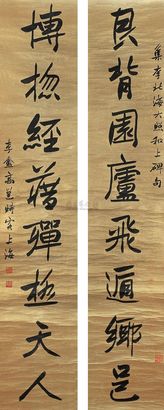 集李北海大照和上碑句
具背園廬飛遁鄉邑
博揔經藉彈極天人
李盦高邕時客上海